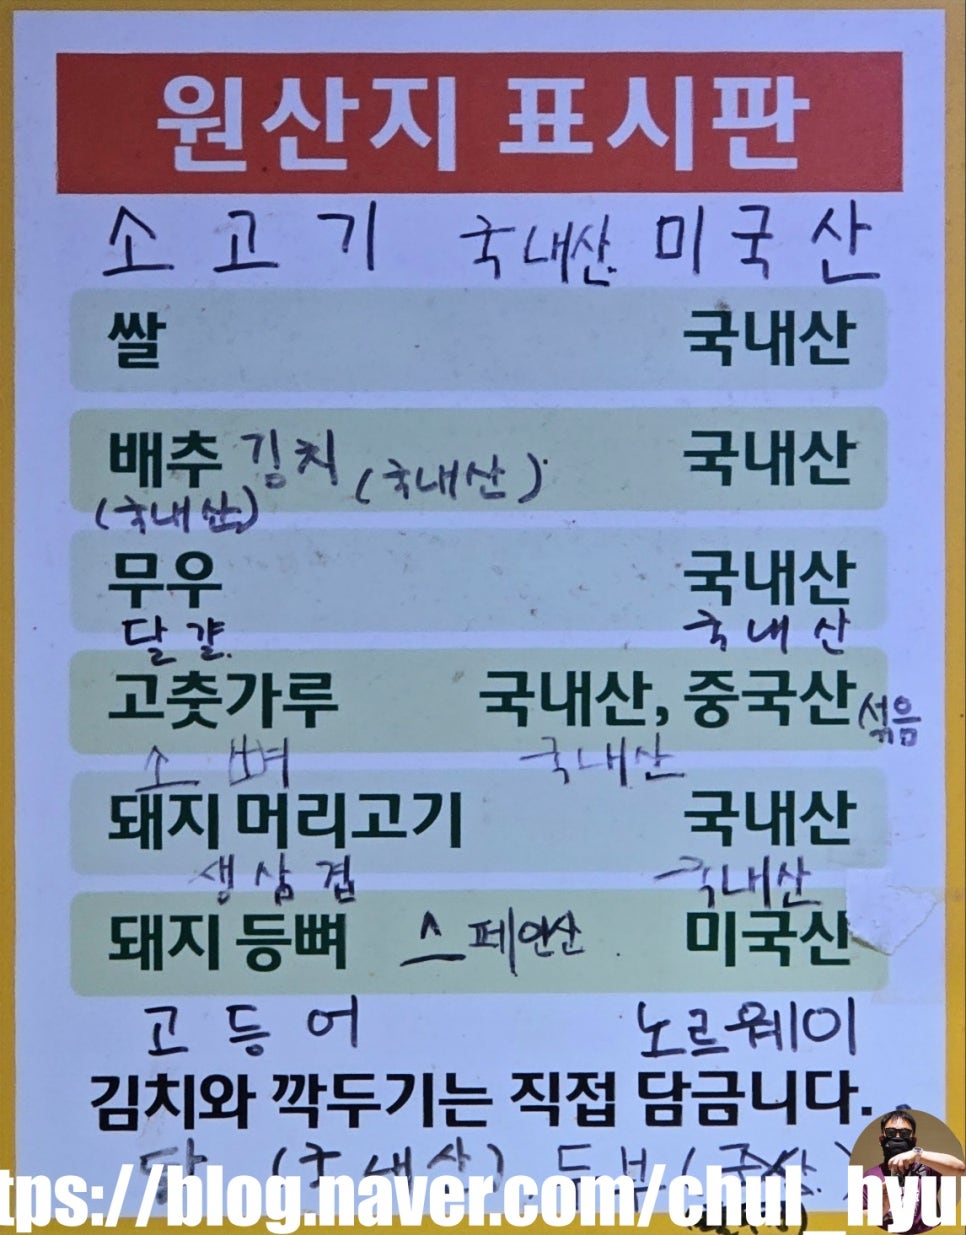 원산지 표시판
소고기 국내산 미국산
쌀 국내산
배추 김치 (국내산) 국내산
(국내산)
무우 국내산
달걀 국내산
고춧가루 국내산, 중국산 섞음
소뼈 국내산
돼지 머리고기 국내산
생삼겹 국내산
돼지 등뼈 스페인산 미국산
고등어 노르웨이
김치와 깍두기는 직접 담금니다.
닭 (국내산) 두부
tps://blog.naver.com/chul_hyun